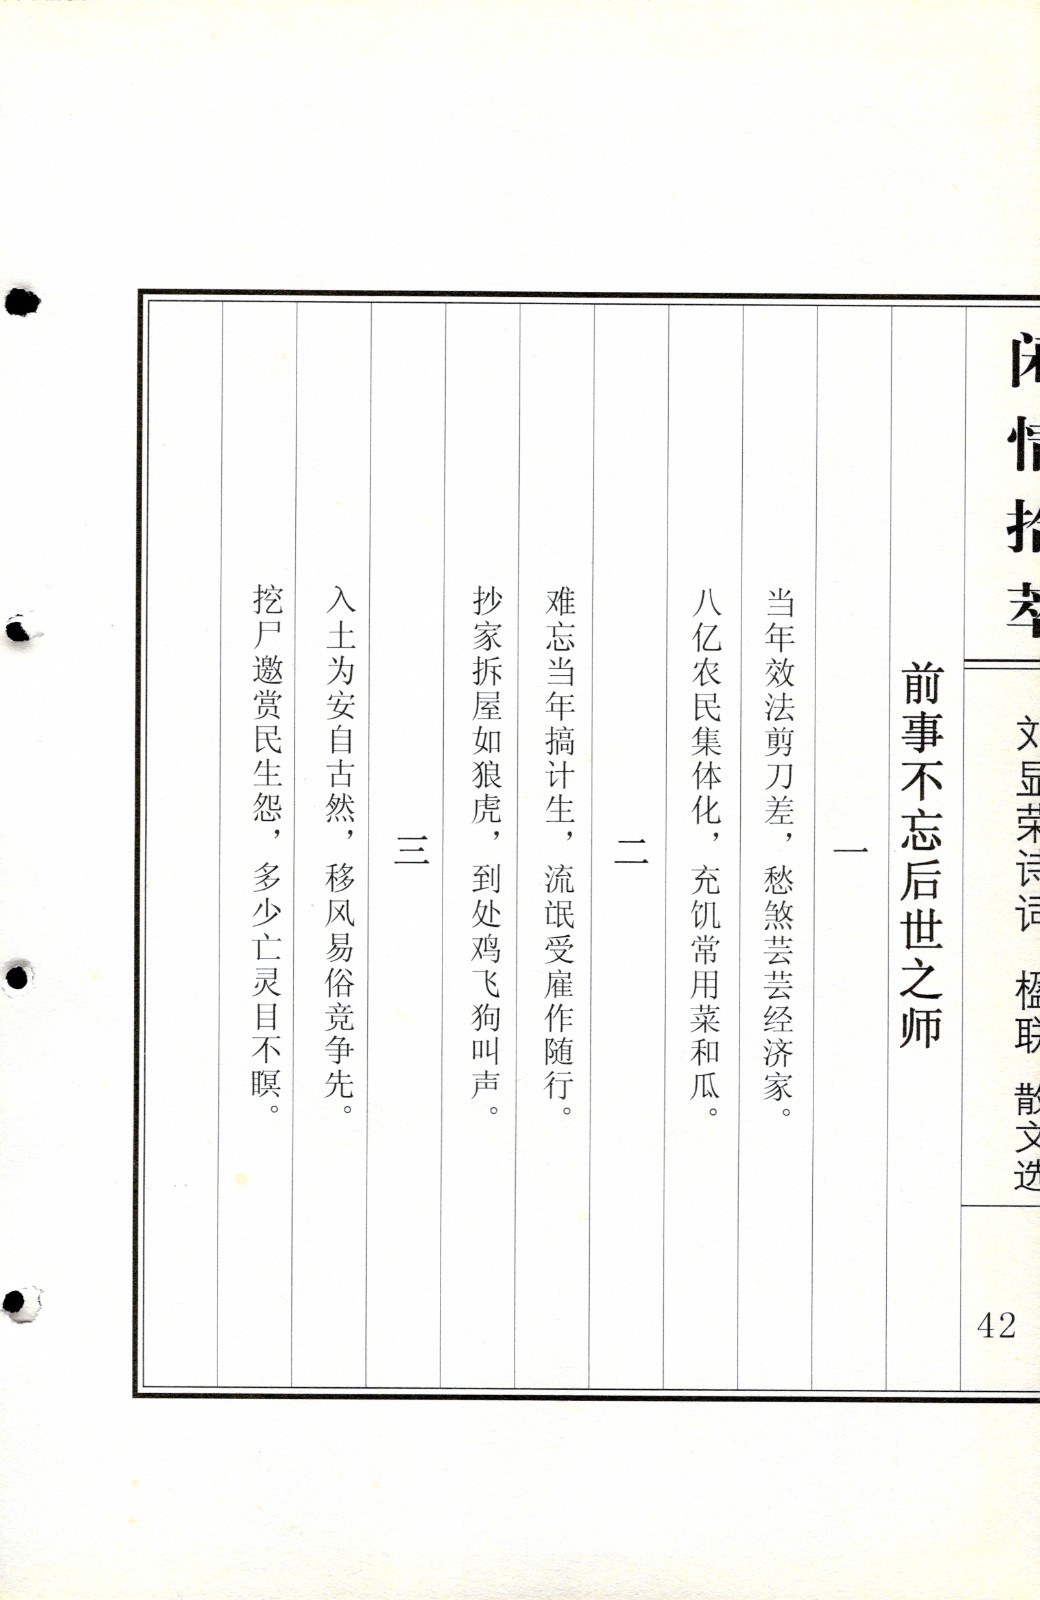 闲情拾萃
刘显荣诗词 楹联 散文选
42
前事不忘后世之师
一
当年效法剪刀差，愁煞芸芸经济家。
八亿农民集体化，充饥常用菜和瓜。
二
难忘当年搞计生，流氓受雇作随行。
抄家拆屋如狼虎，到处鸡飞狗叫声。
三
入土为安自古然，移风易俗竞争先。
挖尸邀赏民生怨，多少亡灵目不瞑。